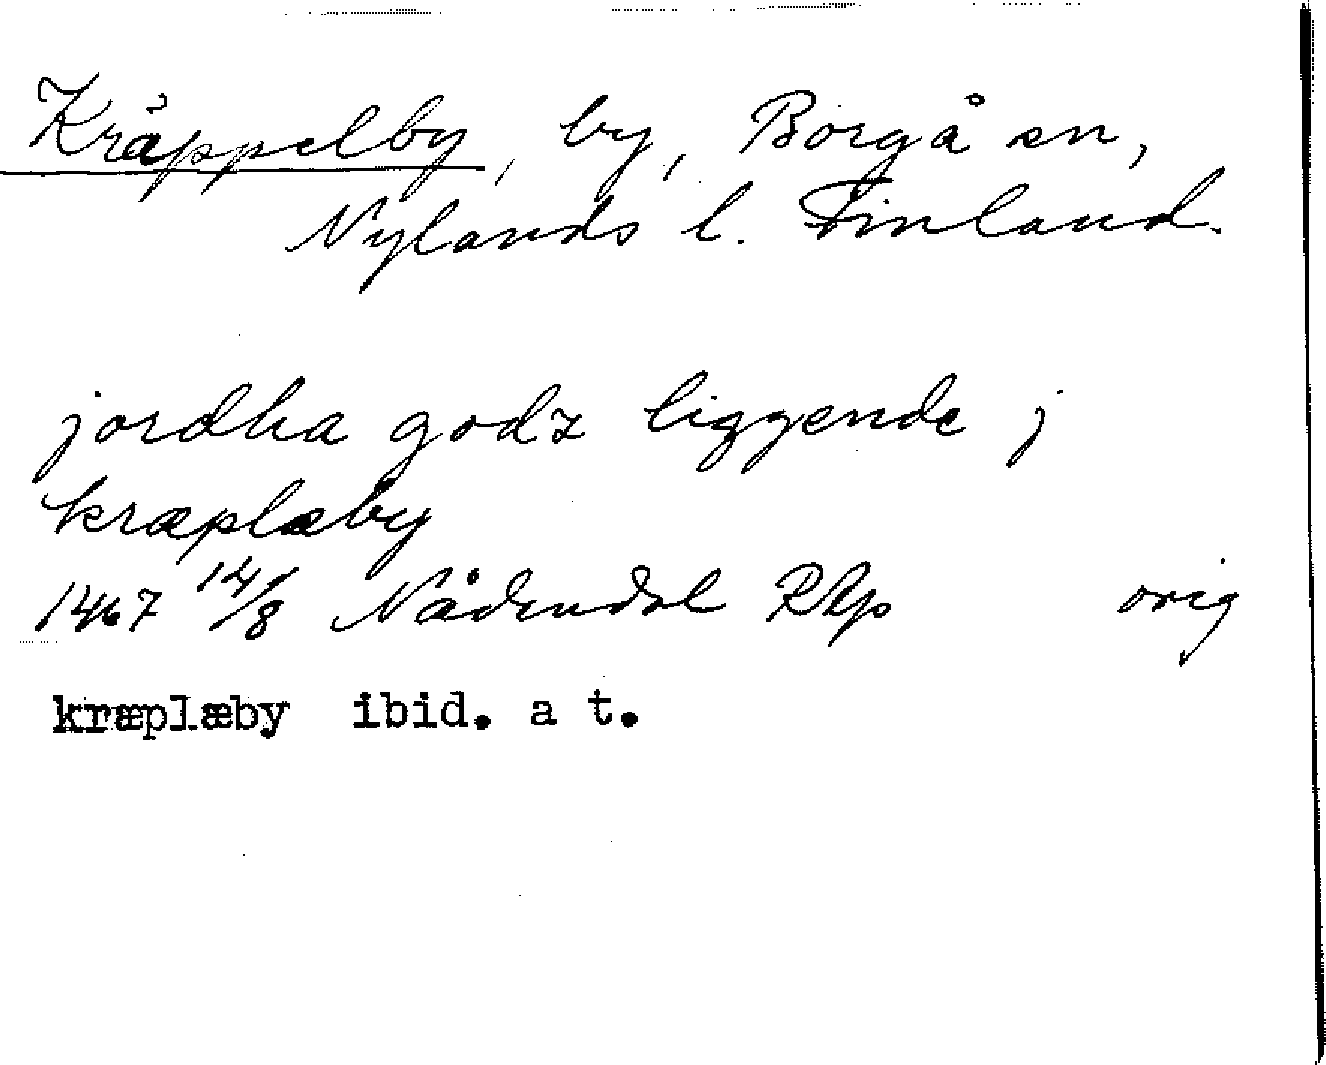 Kräppelby, by, Borgå sn,
Nylands l. Finland.
jordha godz liggende j
kræplæby
1467 14/8 Nådendal RAp orig
kræplæby ibid. a t.